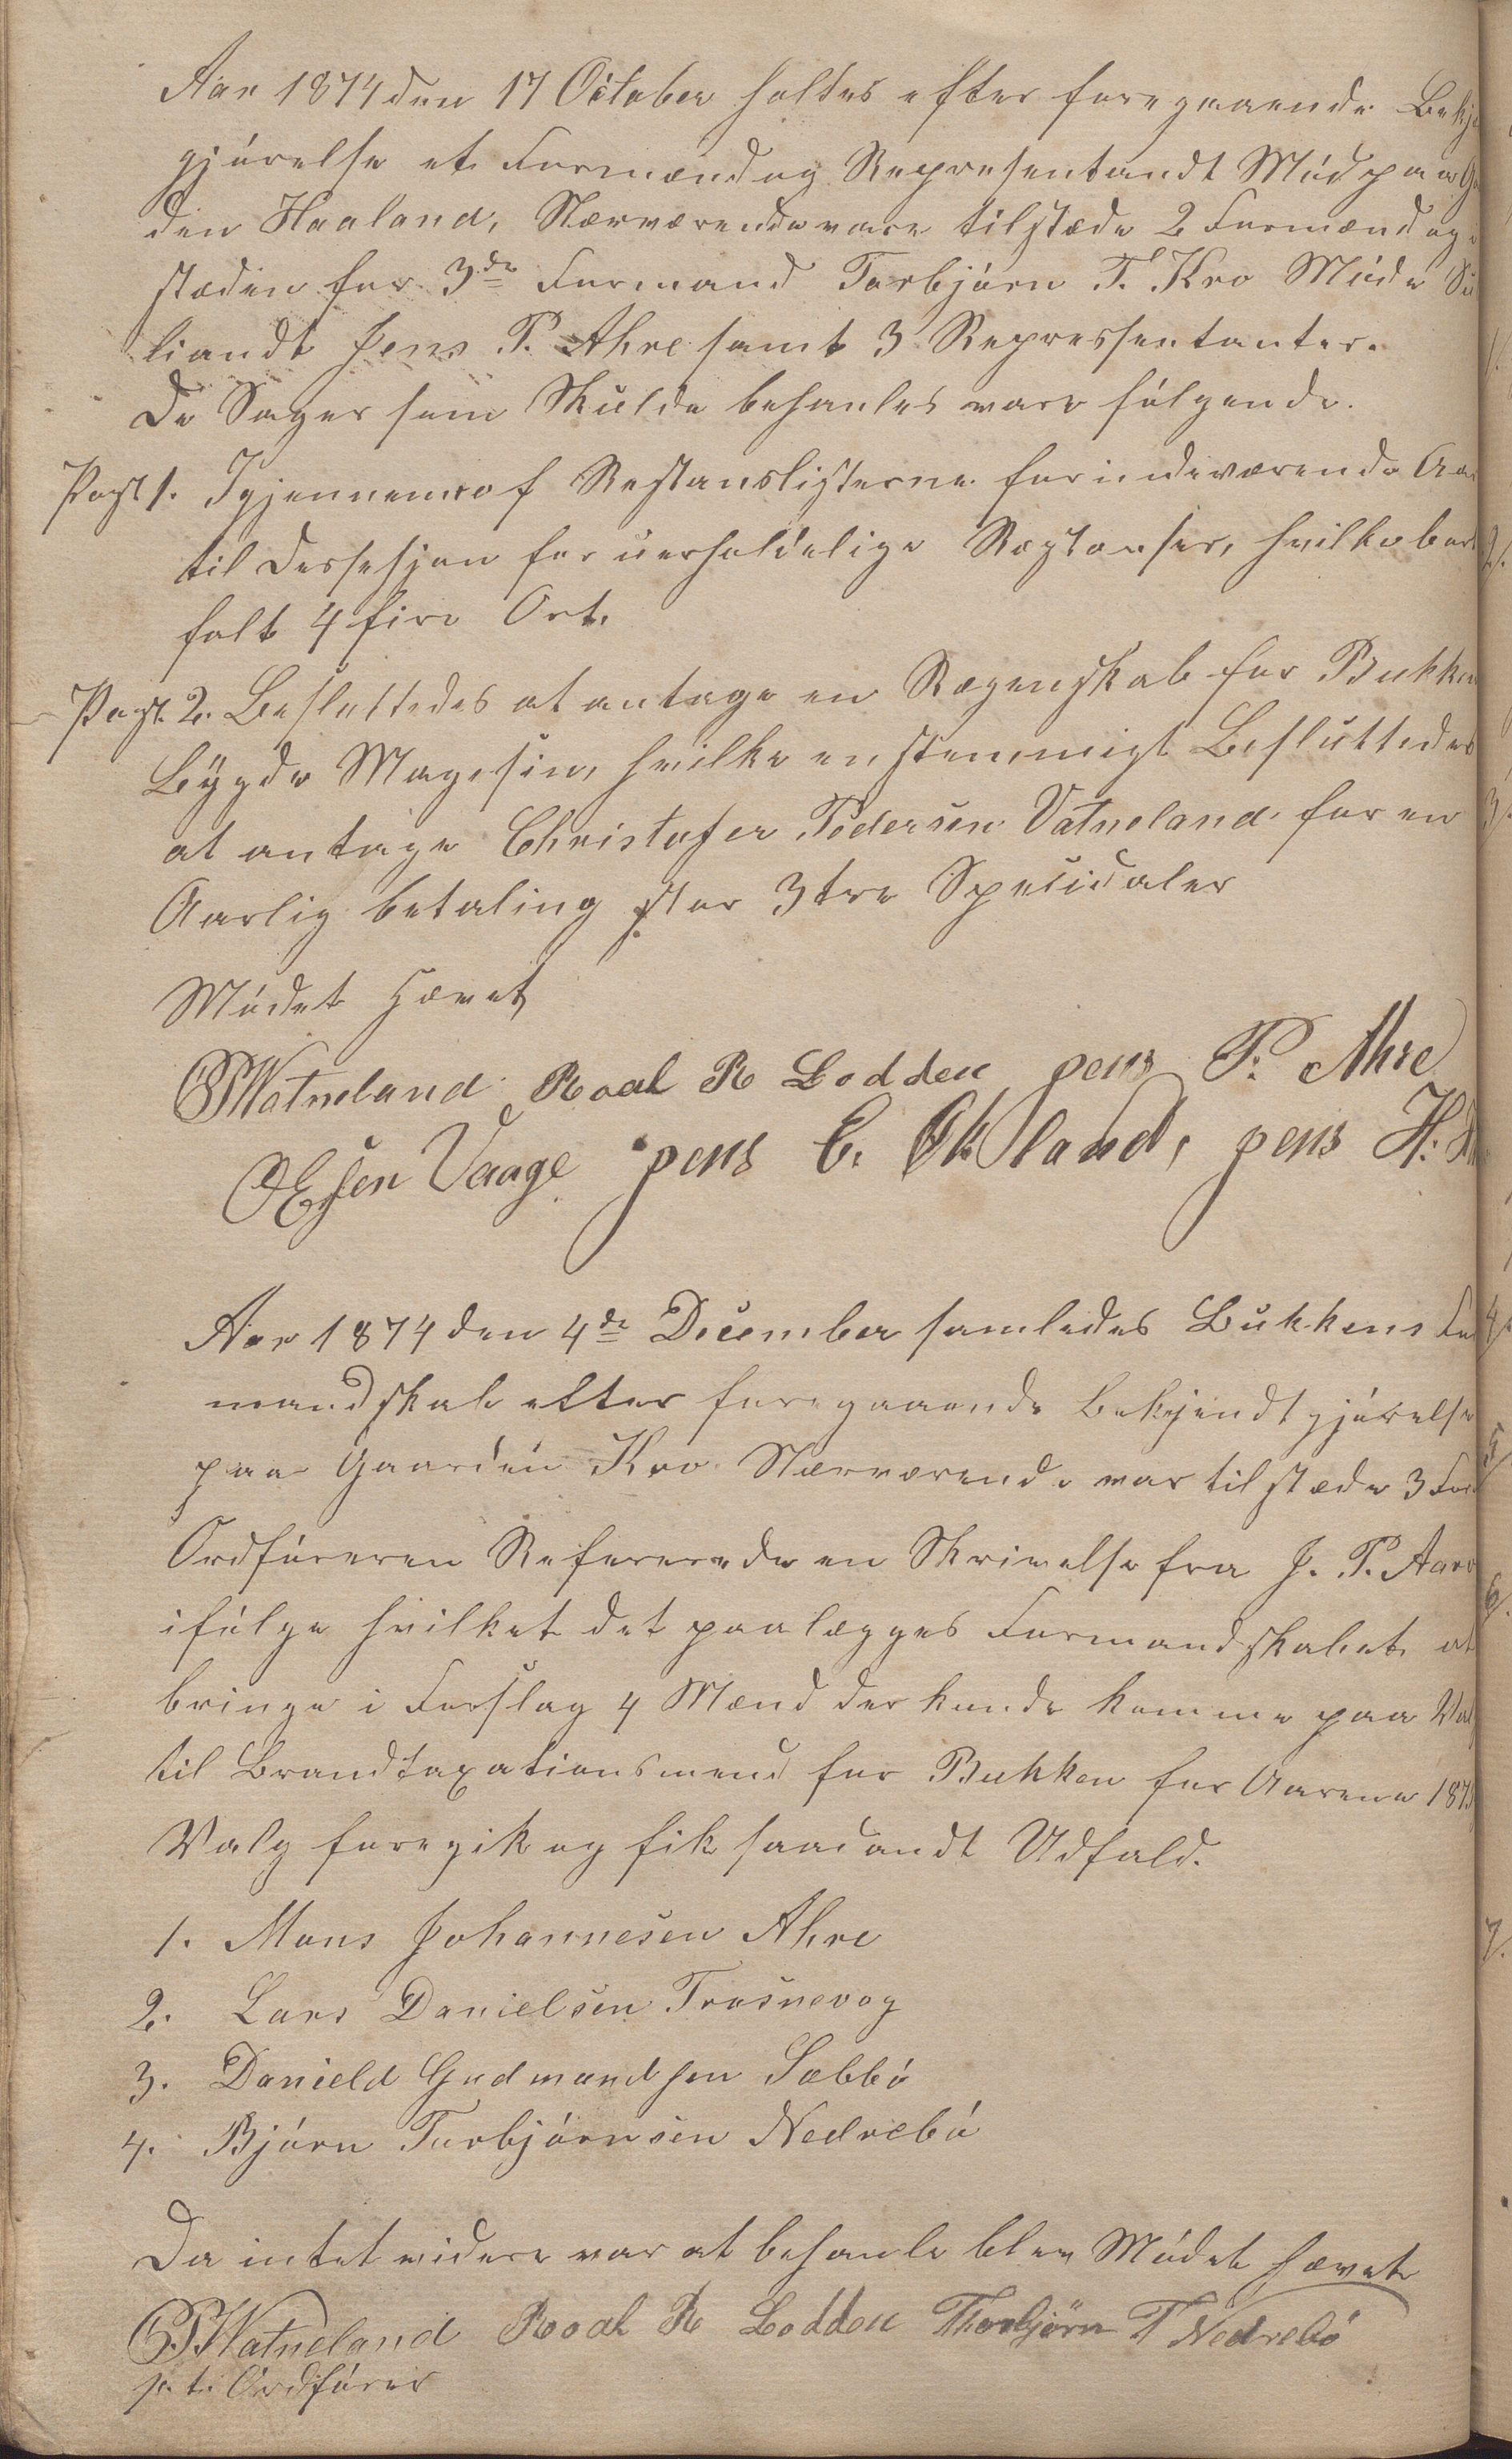 Aar 1874 den 17 October holtes efter foregaaende Bekj
gjørelse et Formænd og Representandt Mød paa Ga
den Haaland, Nærværende vare tilstæde 2 Formænd og i
stæden for 3de Formand Torbjørn T. Kro Møde Su
liandt Jens P. Ahre samt 3 Repressentanter.
De Sager som Skulde behanles vare følgende.
Post 1. Igjennemrof Restanslisterne for indeværende Aar
til Dessesjon for uerholdelige Restanser, hvilke beet
falt 4 fire Ort.
Post. 2. Besluttedes at antage en Regenskab for Bukken
Bygde Magesin, hvilke enstemmigt Besluttedes
at antage Christofer Pedersen Vatneland for en
Aarlig betaling stor 3 tre Speciдaler
Mødet Hævet
CPWatneland Roal R Lodden jens P. Ahre
OEsen Vaage jens C. Økland, jens H.
Aar 1874 den 4de December samledes Bukkens For
mandskab etter foregaaende Bekjendtgjørelse
paa Gaarden Kro Nærværende var tilstæde 3 For
Ordføreren Refererede en Skrivelse fra J. P. Aare
ifølge hvilket det paalægges Formandskabet at
bringe i Forslag 4 Mænd der kunde komme paa Valg
til Brandtaxationsmend for Bukken for Aarene 187
Valg foregik og fik saadandt Udfald.
1. Mons Johannesen Ahre
2. Lars Danielsen Trosnevog
3. Danield Gudmundsen Sæbbø
4. Bjørn Torbjørnsen Nedrebø
Da intet videre var at behanle blev Mødet hævet
CPWatneland Roal R Lodden Thorbjörn T Nedrebö
p. t. Ordfører